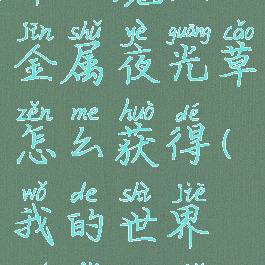 jīn shǔ yè guāng cǎo
金属夜光草
zěn me huò dé
怎么获得(
wǒ de shì jiè
我的世界